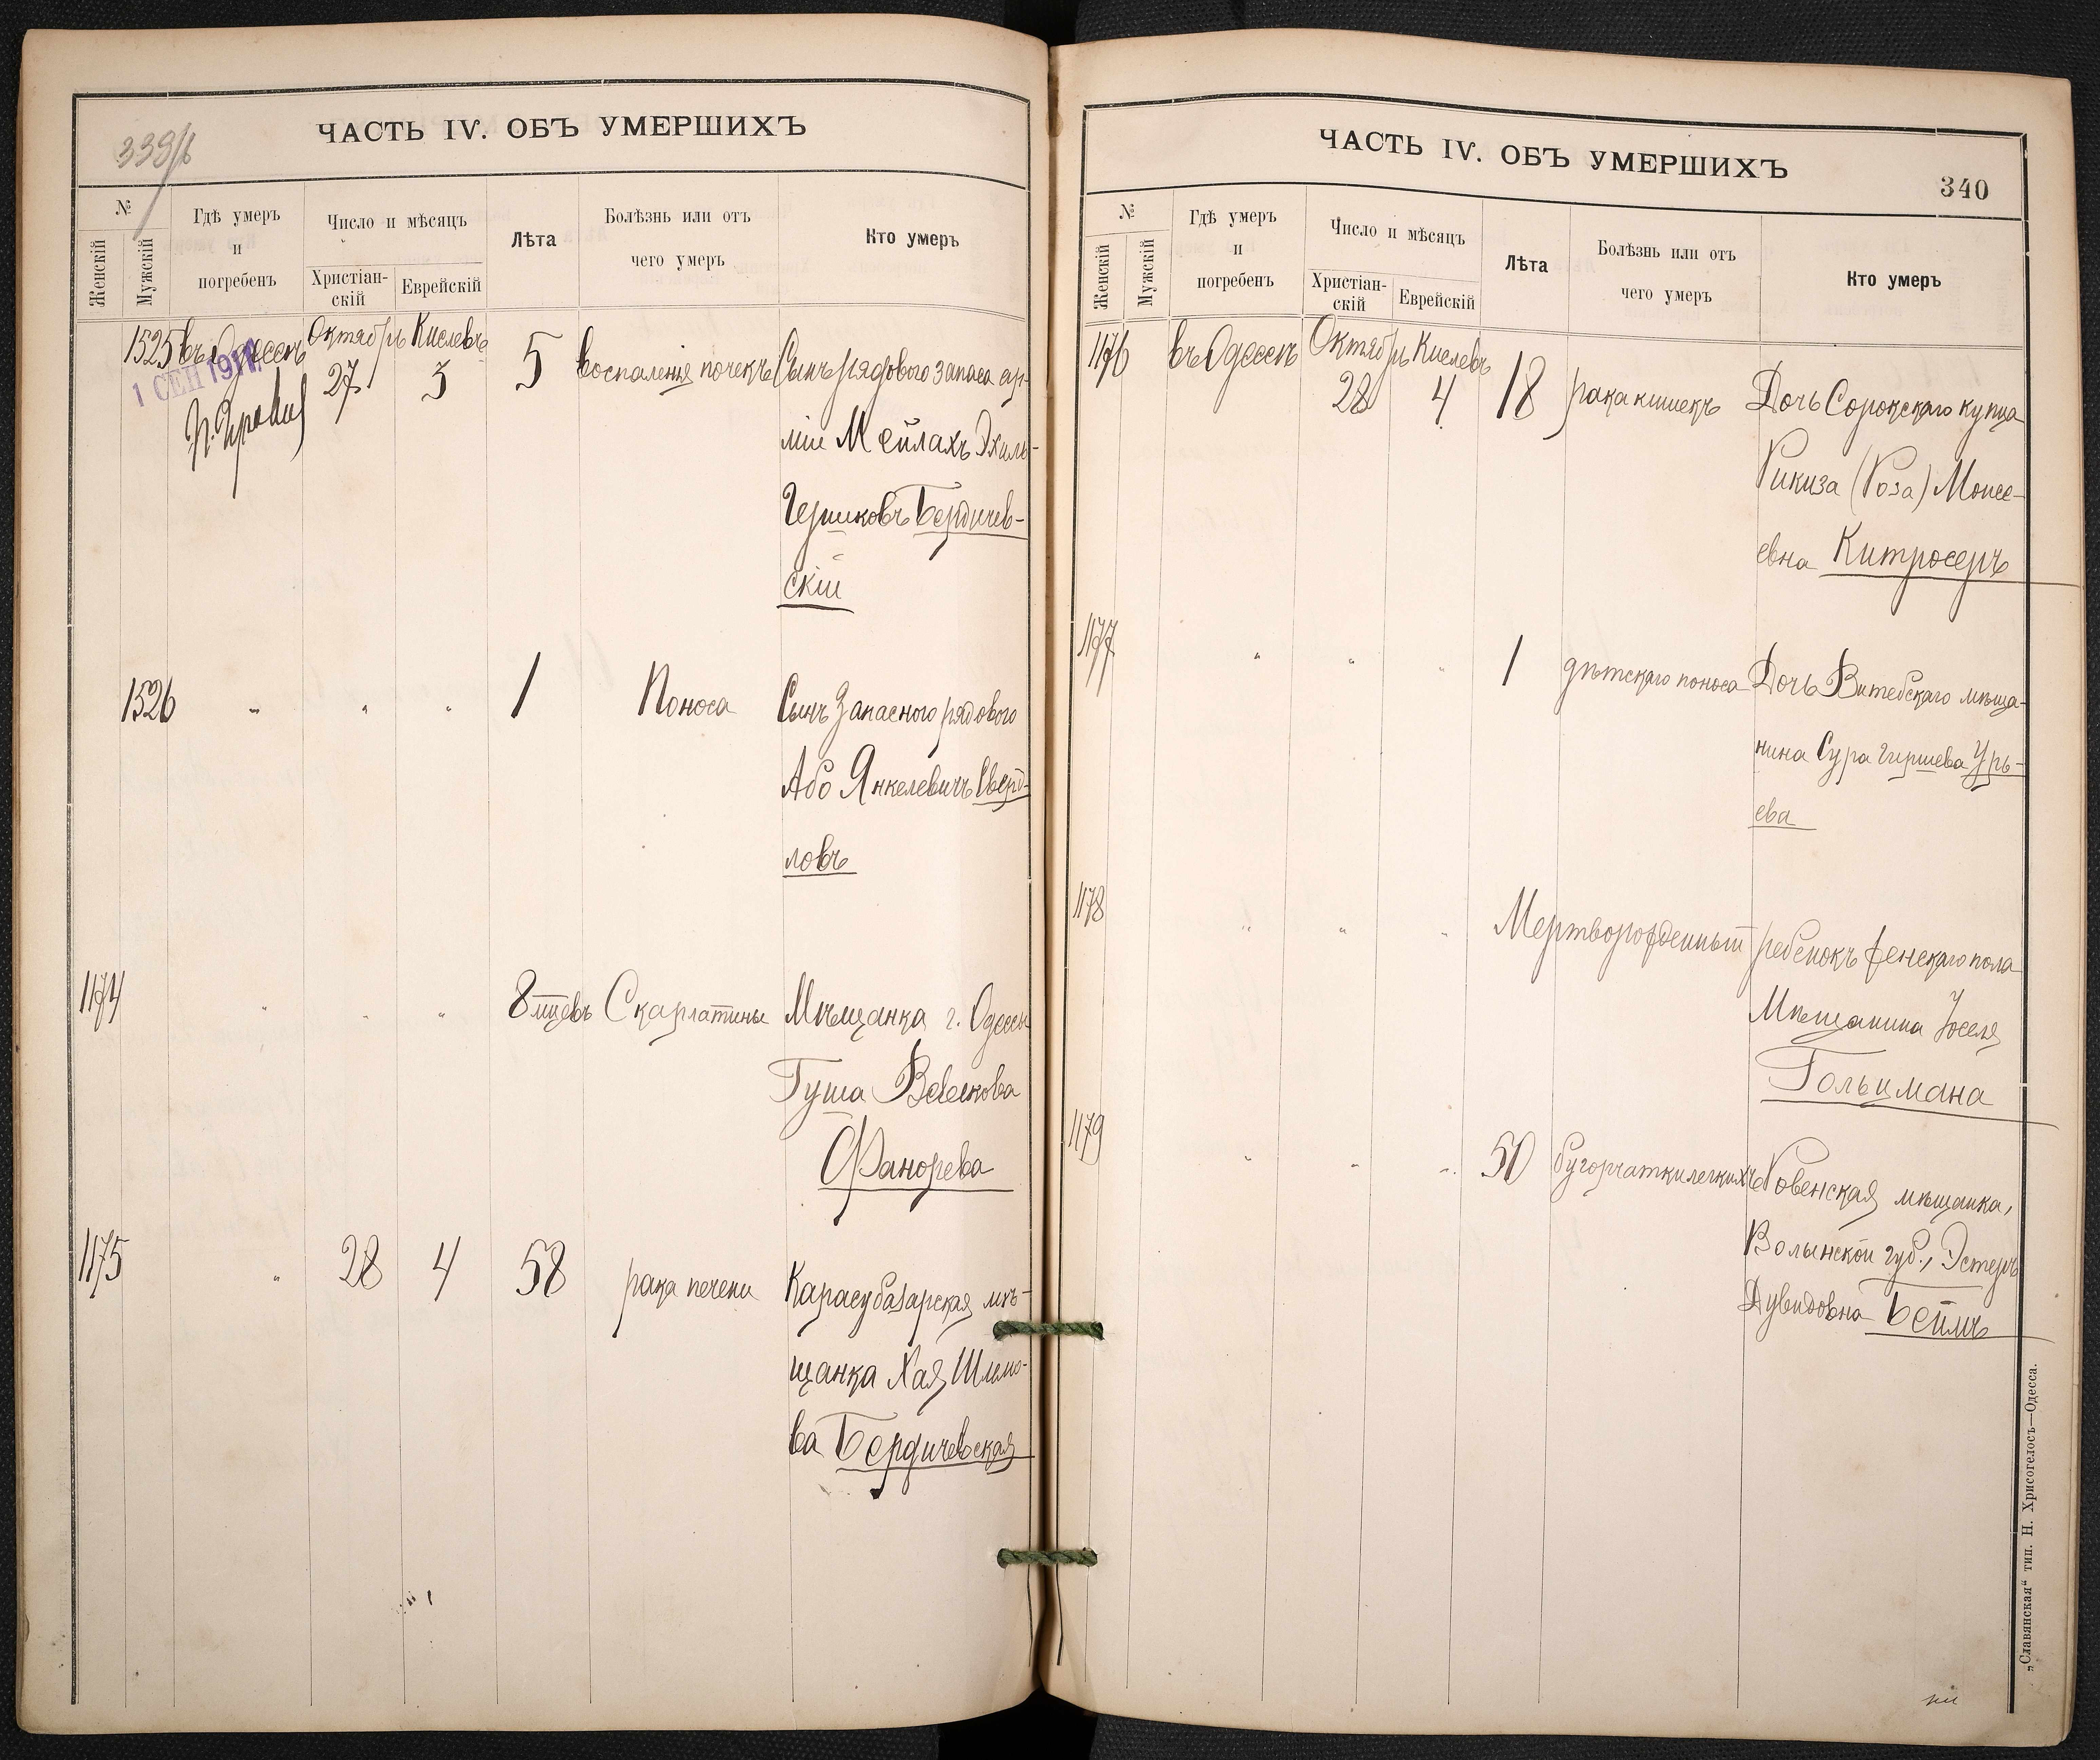 339/б
ЧАСТЬ IV. ОБЪ УМЕРШИХЪ
№
Женскій
Мужскій
Гдѣ умеръ
и
погребенъ
Число и мѣсяцъ
Христіан-
скій
Еврейскій
Лѣта
Болѣзнь или отъ
чего умеръ
Кто умеръ
1525 въ Одессѣ Октябрь 27 Кислевъ 3 5 воспаленія почекъ Сынъ рядового запаса ар-
1 СЕН 1911
міи Мейлахъ Эхиль-
Гершковъ Бердичев-
скій
1526 " " " 1 Поноса Сынъ Запасного рядового
Або Янкелевичъ Сверд-
ловъ
1174 " " " 8 мцевъ Скарлатины Мѣщанка г. Одессы
Гуша Вевикова
Фанорева
1175 " 28 4 58 рака печени Карасубазарская мѣ-
щанка Хая Шлемо-
ва Бердичевская
ЧАСТЬ IV. ОБЪ УМЕРШИХЪ
340
№
Женскій
Мужскій
Гдѣ умеръ
и
погребенъ
Число и мѣсяцъ
Христіан-
скій
Еврейскій
Лѣта
Болѣзнь или отъ
чего умеръ
Кто умеръ
1176 въ Одессѣ Октябрь 28 Кислевъ 4 18 рака кишекъ Дочь Сорокскаго купца
Рикиза (Роза) Моисе-
евна Китросеръ
1177 " " " 1 дѣтскаго поноса Дочь Витебскаго мѣща-
нина Сура Гиршева Урь-
ева
1178 " " " Мертворожденный ребенокъ женскаго пола
Мѣщанина Іоселя
Гольцмана
1179 " " " 50 бугорчатки легкихъ Ровенская мѣщанка,
Волынской губ., Эстеръ
Дувидовна Беймъ
„Славянская“ тип. Н. Хрисогелосъ—Одесса.